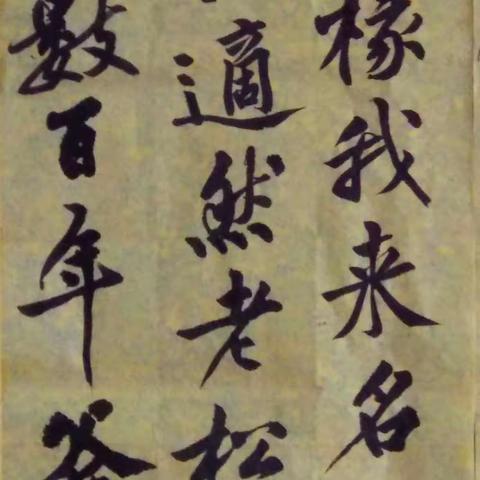 椽我来名
適然老松
數百年斧